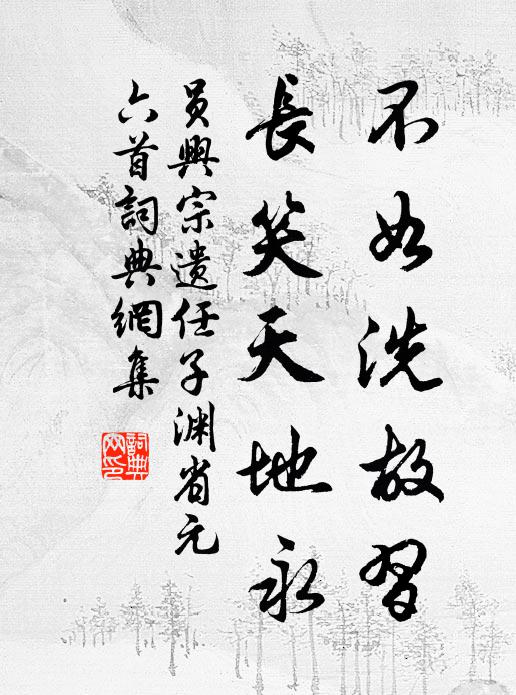 不如洗故習
長笑天地永
員興宗遺任子渊省元
六首詞典網集
詞典網印